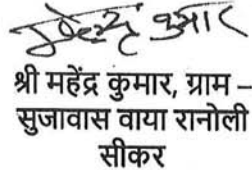 महेन्द्र कुमार
श्री महेंद्र कुमार, ग्राम –
सुजावास वाया रानोली
सीकर